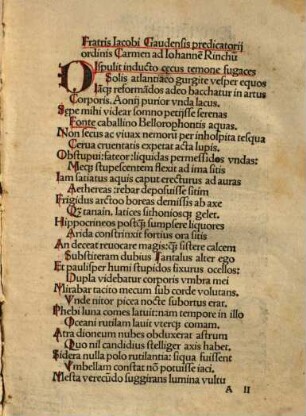 Fratris Jacobi Gaudensis predicatorij
ordinis Carmen ad Johannē Rinchū
DIspulit inducto cęcus temone fugaces
Solis atlantiaco gurgite vesper equos
reformādos adeo bacchatur in artus
Corporis. Aonij purior vnda lacus.
Sępe mihi videar somno petijsse serenas
Fonte caballino Bellorophontis aquas.
Non secus ac viuax nemorū per inhospita tesqua
Cerua cruentatis expetat acta lupis.
Obstupui: fateor: liquidas permessidos vndas:
stupescentem flexit ad ima sitis
Iam satiatus aquis caput erecturus ad auras
Aethereas: rebar deposuisse sitim
Frigidus arctoo boreas demissis ab axe
tanain. latices sithoniosqȝ gelet.
Hippocrineos postqȝ sumpsere liquores
Arida constrinxit fortius ora sitis
An deceat reuocare magis: sistere calcem
Substiteram dubius Tantalus alter ego
Et paulisper humi stupidos fixurus ocellos:
Dupla videbatur corporis vmbra mei
Mirabar tacito mecum sub corde volutans.
Vnde nitor picea nocte subortus erat.
Phebi luna comes latuit: nam tempore in illo
Oceani rutilam lauit comam.
Atra dioneum nubes obduxerat astrum
Quo nil candidius stelliger axis habet.
Sidera nulla polo rutilantia: siqua fuissent
Vmbellam constat nō potuisse iaci.
Mesta verecūdo suggirans lumina vultu
A II